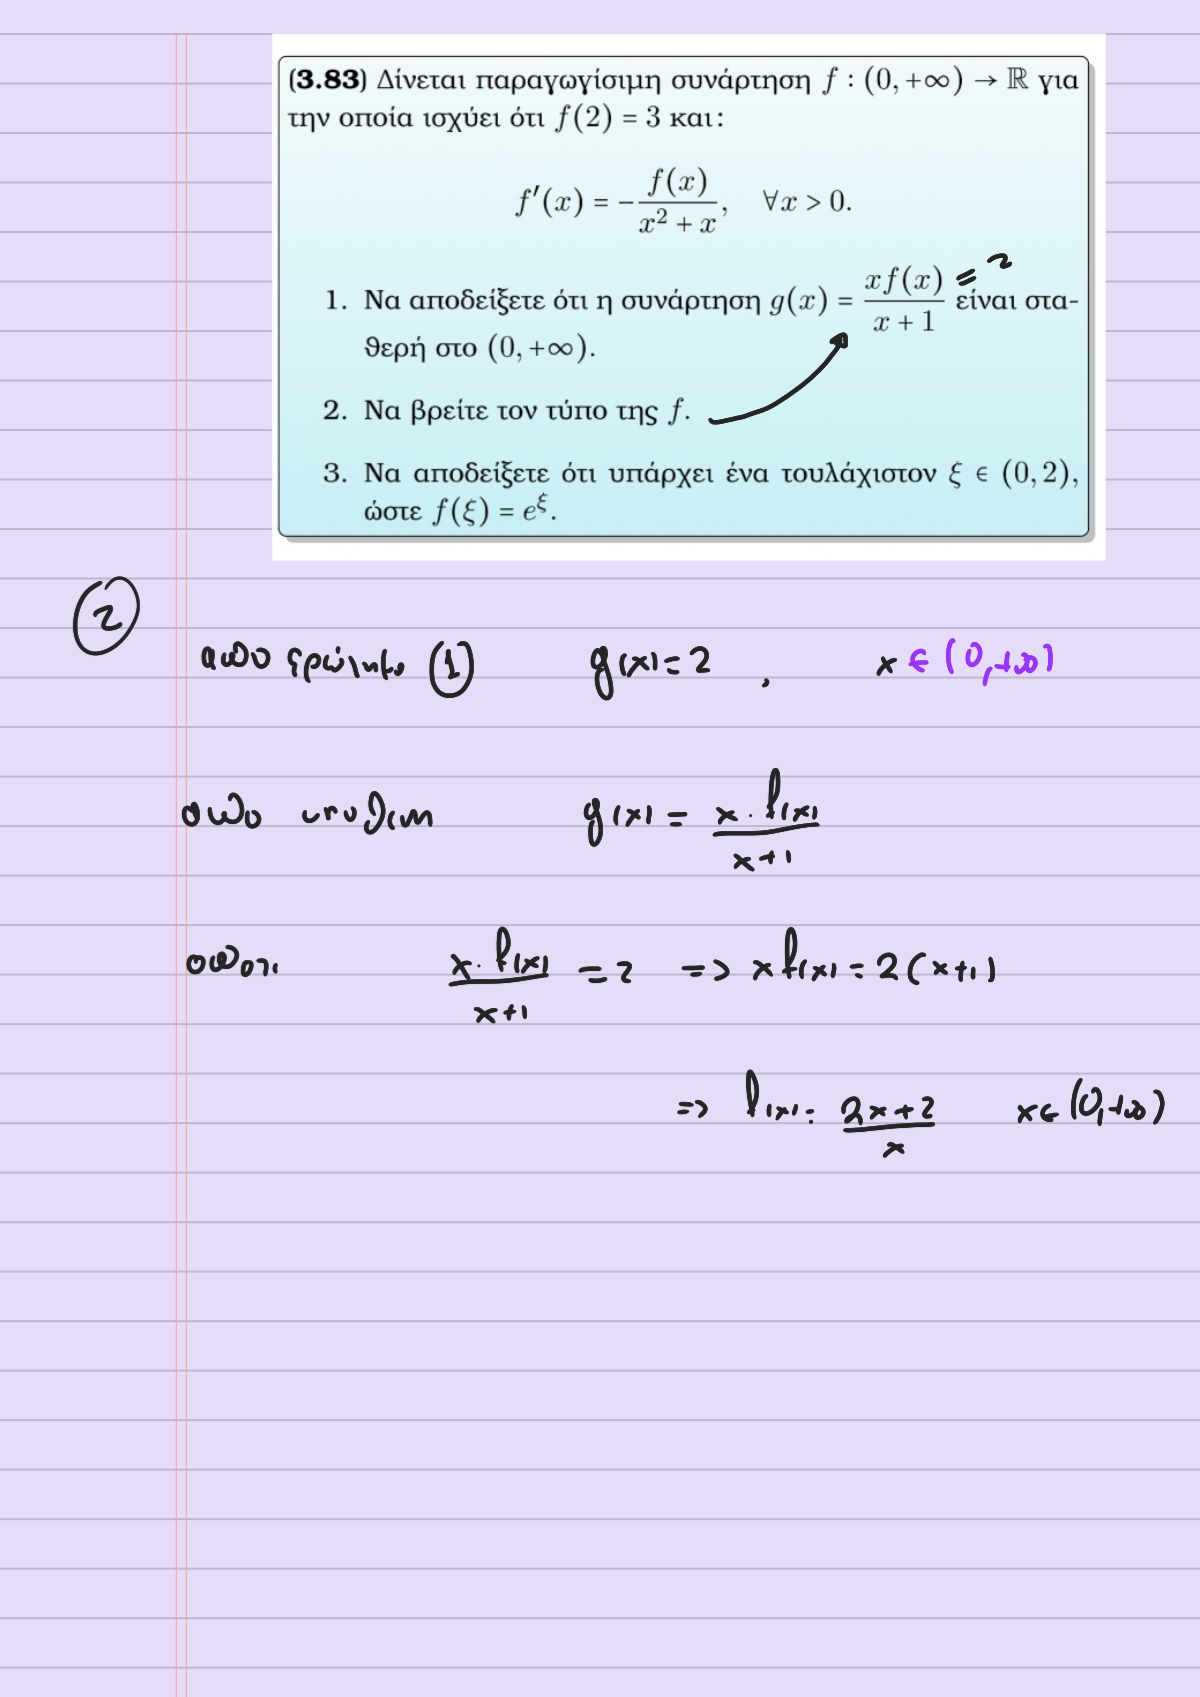 (3.83) Δίνεται παραγωγίσιμη συνάρτηση f : (0, +∞) → ℝ για
την οποία ισχύει ότι f(2) = 3 και:
f′(x) = −f(x)/(x² + x), ∀x > 0.
1. Να αποδείξετε ότι η συνάρτηση g(x) = xf(x)/(x + 1) = 2 είναι στα-
θερή στο (0, +∞).
2. Να βρείτε τον τύπο της f.
3. Να αποδείξετε ότι υπάρχει ένα τουλάχιστον ξ ∈ (0, 2),
ώστε f(ξ) = e^ξ.
2
από ερώτημα (1) g(x) = 2 , x ∈ (0, +∞)
από υπόθεση g(x) = x · f(x)/(x+1)
οπότε x · f(x)/(x+1) = 2 => x f(x) = 2(x+1)
=> f(x) = (2x+2)/x x ∈ (0, +∞)